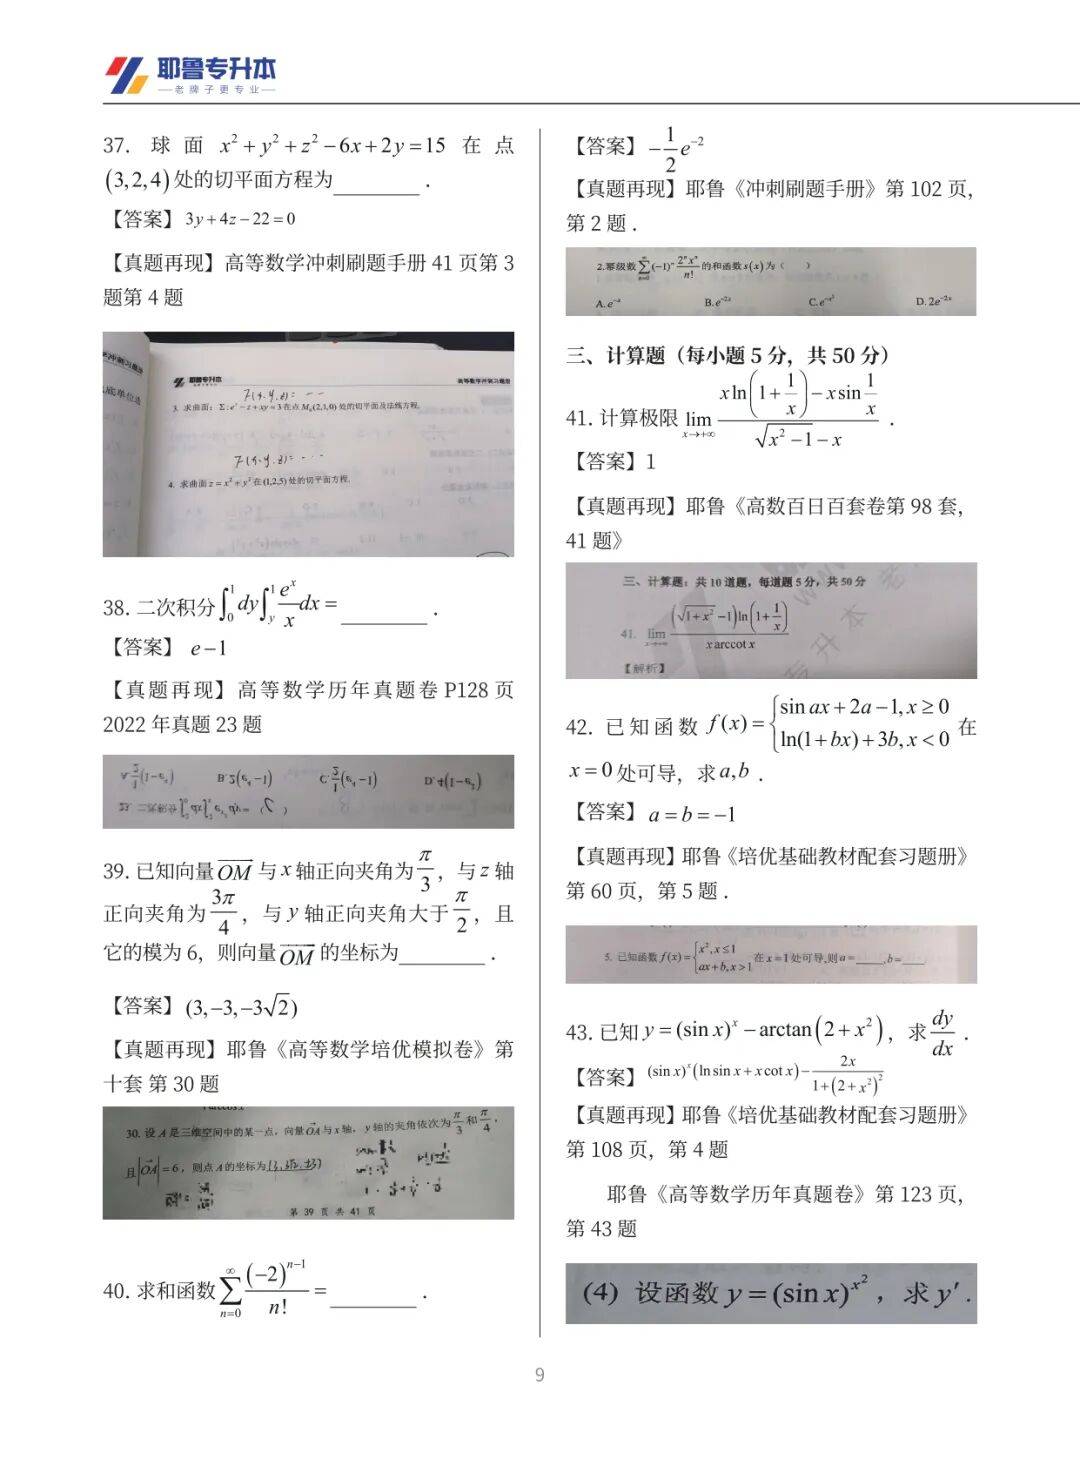 耶鲁专升本
老牌子更专业
37. 球面 x²+y²+z²−6x+2y=15 在点
(3,2,4)处的切平面方程为________.
【答案】3y+4z−22=0
【真题再现】高等数学冲刺刷题手册 41 页第 3
题第 4 题
耶鲁专升本
高等数学冲刺习题册
F(x.y.z)= ---
3. 求曲面：Σ:eᶻ−z+xy=3在点M₀(2,1,0)处的切平面及法线方程.
F(x.y.z)= ---
4. 求曲面z=x²+y²在(1,2,5)处的切平面方程.
38. 二次积分∫₀¹dy∫_y¹ eˣ/x dx=________.
【答案】 e−1
【真题再现】高等数学历年真题卷 P128 页
2022 年真题 23 题
39. 已知向量OM与x轴正向夹角为π/3，与z轴
正向夹角为3π/4，与y轴正向夹角大于π/2，且
它的模为 6，则向量OM的坐标为________.
【答案】(3,−3,−3√2)
【真题再现】耶鲁《高等数学培优模拟卷》第
十套 第 30 题
30. 设A是三维空间中的某一点，向量OA与x轴，y轴的夹角依次为π/3和π/4，
且|OA|=6，则点A的坐标为
第 39 页 共 41 页
40. 求和函数∑_{n=0}^{∞} (−2)^{n−1}/n! =________.
【答案】−1/2 e⁻²
【真题再现】耶鲁《冲刺刷题手册》第 102 页，
第 2 题.
2.幂级数∑_{n=0}^{∞}(−1)ⁿ 2ⁿxⁿ/n! 的和函数s(x)为（ ）
A.e^{−x} B.e^{−2x} C.e^{−x²} D.2e^{−2x}
三、计算题（每小题 5 分，共 50 分）
41. 计算极限 lim_{x→+∞} (x ln(1+1/x)−x sin 1/x)/(√(x²−1)−x).
【答案】1
【真题再现】耶鲁《高数百日百套卷第 98 套，
41 题》
三、计算题：共 10 道题，每道题 5 分，共 50 分
41. lim_{x→+∞} (√(1+x²)−1)ln(1+1/x)/(x arccot x)
【解析】
42. 已知函数 f(x)={sin ax+2a−1,x≥0 ln(1+bx)+3b,x<0 在
x=0处可导，求a,b.
【答案】a=b=−1
【真题再现】耶鲁《培优基础教材配套习题册》
第 60 页，第 5 题.
5. 已知函数f(x)={x²,x≤1 ax+b,x>1 在x=1处可导,则a=____,b=____
43. 已知y=(sin x)ˣ−arctan(2+x²)，求dy/dx.
【答案】(sin x)ˣ(ln sin x+x cot x)−2x/(1+(2+x²)²)
【真题再现】耶鲁《培优基础教材配套习题册》
第 108 页，第 4 题
耶鲁《高等数学历年真题卷》第 123 页，
第 43 题
(4) 设函数y=(sin x)^{x²}，求y′.
9